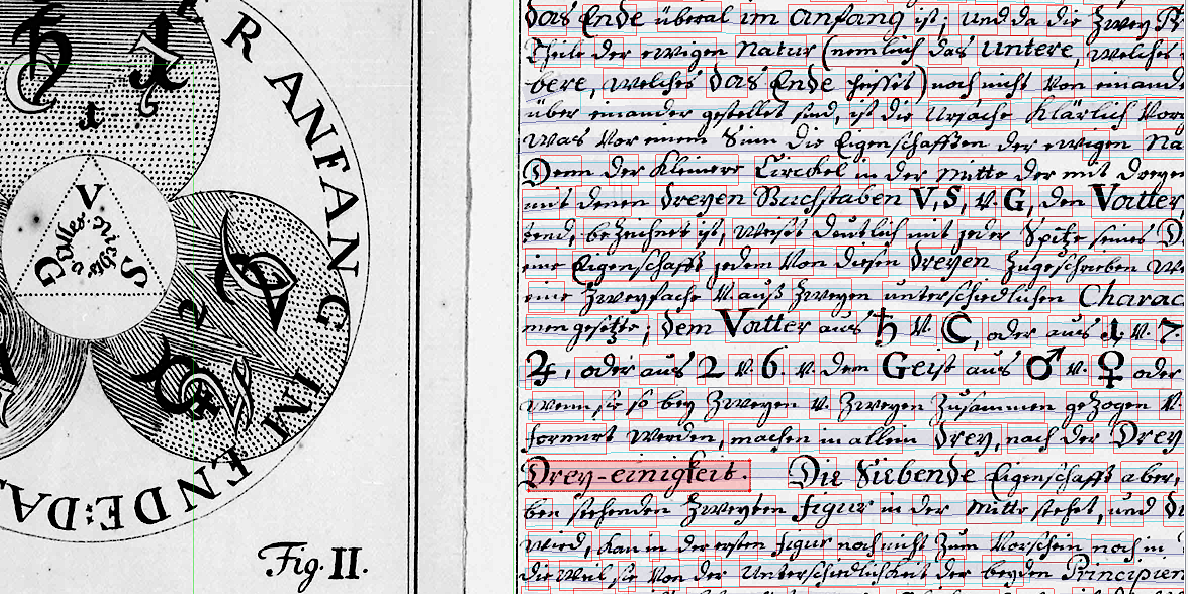 R ANFANG IM ENDE: DA
V
S
G
Alles
1
2
Fig. II.
das Ende überal im anfang ist; und da die Zwey
Theile der ewigen Natur (nemlich das untere, welches
bere, welches das Ende heisset) noch nicht von einand
über einander gestellet sind, ist die Ursache klärlich Vor
was vor einem Sinn die Eigenschafften der ewigen Na
Denn der kleinere Circkel in der mitte der mit dreyen
mit denen dreyen Buchstaben V, S, v. G, den Vatter,
tend, bezeichnet ist, weiset deutlich mit jeder Spitze seines D
eine Eigenschafft jedem von diesen dreyen zugeschrieben W
eine Zweyfache v. auß Zweyen unterschiedlichen Charac
men gesetzte; dem Vatter aus ♄ v. ☾, oder aus 1 v. 7.
♃, oder aus 2 v. 6. v. dem Geist aus ♂ v. ♀ oder
wenn sie so bey Zweyen v. Zweyen Zusammen gezogen v.
formirt werden, machen in allein drey, nach der Drey
Drey-einigkeit. Die Siebende Eigenschafft aber,
ben stehenden Zweyten figur in der mitte stehet, und
wird, kan in der ersten figur noch nicht zum Vorschein noch in
die weil sie von der Unterschiedlichkeit der beyden Principien